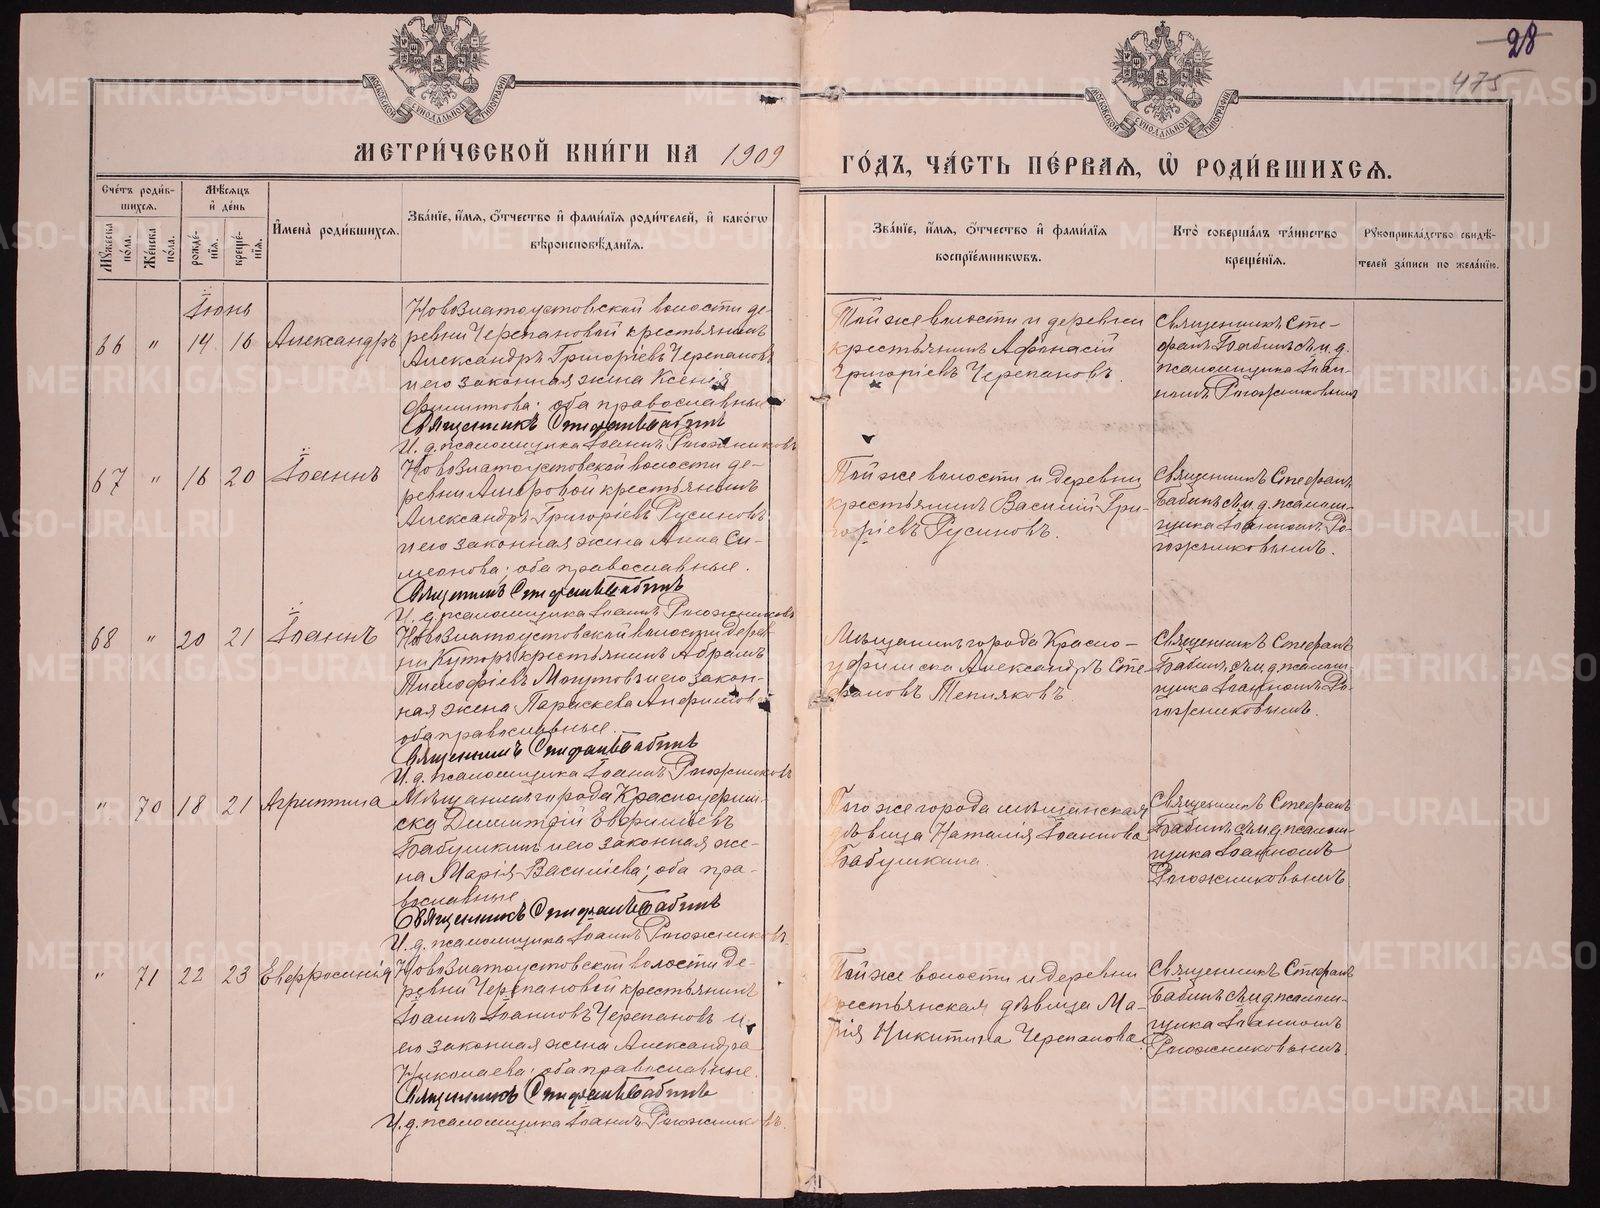 28
475
МОСКОВСКОЙ СѴНОДАЛЬНОЙ ТИПОГРАФІИ
МОСКОВСКОЙ СѴНОДАЛЬНОЙ ТИПОГРАФІИ
МЕТРИ́ЧЕСКОЙ КНИ́ГИ НА 1909 ГО́ДЪ, ЧА́СТЬ ПЕ́РВАѦ, Ѡ҆ РОДИ́ВШИХСѦ.
Сче́тъ роди́в-
шихсѧ.
Мꙋ́жеска по́ла.
Же́нска по́ла.
Мѣ́сѧцъ
и҆ де́нь
рожде́-
нїѧ.
креще́-
нїѧ.
И҆мена̀ роди́вшихсѧ.
Зва́нїе, и҆́мѧ, ѻ҆́тчество и҆ фами́лїѧ роди́телей, и҆ како́гѡ
вѣроисповѣ́данїѧ.
Зва́нїе, и҆́мѧ, ѻ҆́тчество и҆ фами́лїѧ
воспрїе́мникѡвъ.
Кто̀ соверша́лъ та́инство
креще́нїѧ.
Рꙋкоприкла́дство свидѣ́-
телей за́писи по жела́нїю.
Іюнь
66 " 14 16 Александръ
Новозлатоустовской волости де-
ревни Черепановой крестьянинъ
Александръ Григоріевъ Черепановъ
и его законная жена Ксенія
Филиппова; оба православные
Священникъ Стефанъ Бабинъ
И. д. псаломщика Іоаннъ Рогожниковъ
Той же волости и деревни
крестьянинъ Афанасій
Григоріевъ Черепановъ.
Священникъ Сте-
фанъ Бабинъ съ и. д.
псаломщика Іоан-
номъ Рогожниковымъ
67 " 16 20 Іоаннъ
Новозлатоустовской волости де-
ревни Амеровой крестьянинъ
Александръ Григоріевъ Русиновъ
и его законная жена Анна Си-
меонова; оба православные.
Священникъ Стефанъ Бабинъ
И. д. псаломщика Іоаннъ Рогожниковъ
Той же волости и деревни
крестьянинъ Василій Гри-
горіевъ Русиновъ.
Священникъ Стефанъ
Бабинъ съ и. д. псалом-
щика Іоанномъ Ро-
гожниковымъ.
68 " 20 21 Іоаннъ
Новозлатоустовской волости дерев-
ни Куторъ крестьянинъ Абрамъ
Тимофіевъ Могутовъ и его закон-
ная жена Параскева Анфимова
оба православные.
Священникъ Стефанъ Бабинъ
И. д. псаломщика Іоаннъ Рогожниковъ
Мѣщанинъ города Красно-
уфимска Александръ Сте-
фановъ Тепляковъ
Священникъ Стефанъ
Бабинъ съ и. д. псалом-
щика Іоанномъ Ро-
гожниковымъ.
" 70 18 21 Агриппина
Мѣщанинъ города Красноуфим-
ска Димитрій Евфиміевъ
Бабушкинъ и его законная же-
на Марія Васильева; оба пра-
вославные
Священникъ Стефанъ Бабинъ
И. д. псаломщика Іоаннъ Рогожниковъ.
Того же города мѣщанская
дѣвица Наталія Іоаннова
Бабушкина.
Священникъ Стефанъ
Бабинъ съ и. д. псалом-
щика Іоанномъ
Рогожниковымъ
" 71 22 23 Евфросинія
Новозлатоустовской волости де-
ревни Черепановой крестьянинъ
Іоаннъ Іоанновъ Черепановъ и
его законная жена Александра
Николаева; оба православные.
Священникъ Стефанъ Бабинъ
И. д. псаломщика Іоаннъ Рогожниковъ.
Той же волости и деревни
крестьянская дѣвица Ма-
рія Никитина Черепанова.
Священникъ Стефанъ
Бабинъ съ и. д. псалом-
щика Іоанномъ
Рогожниковымъ.
METRIKI.GASO-URAL.RU